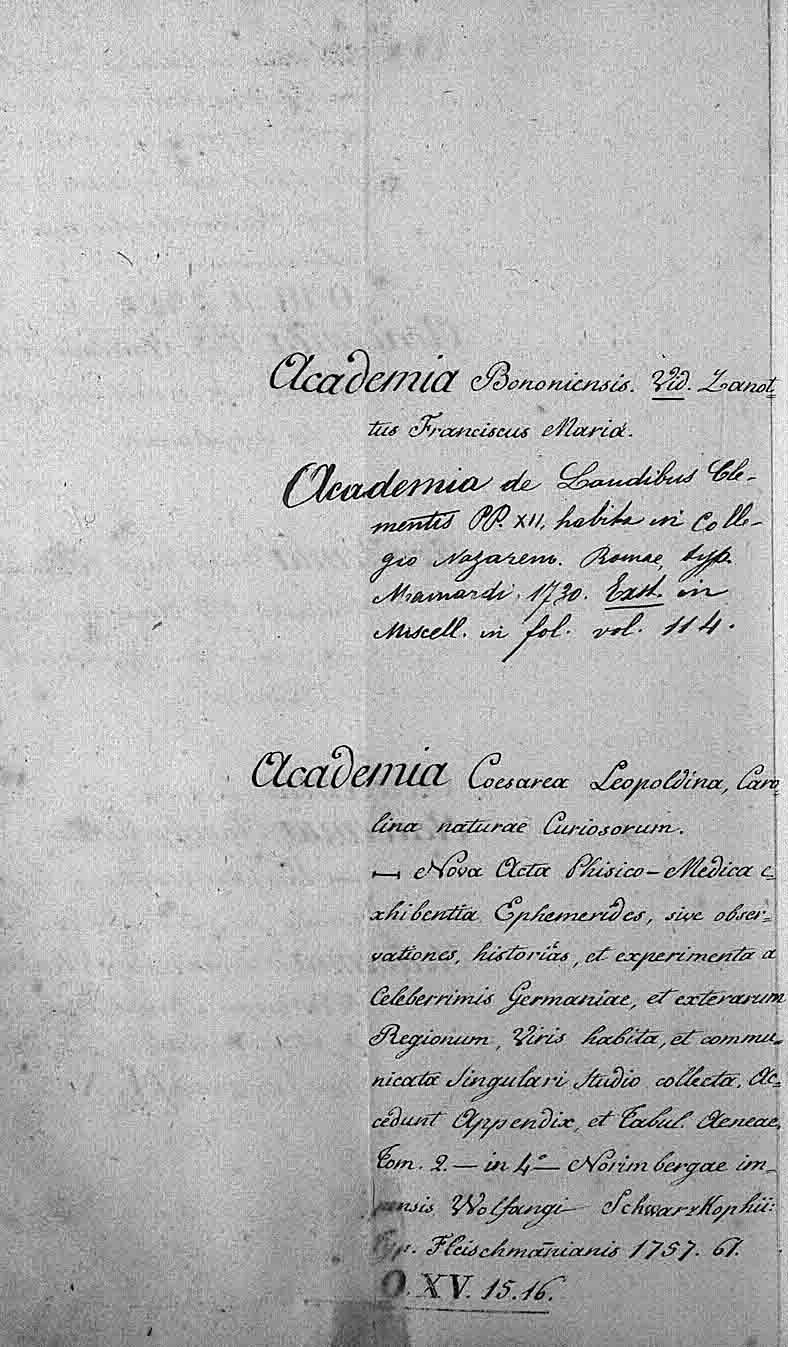 Academia Bononiensis. Vid. Zanot=
tus Franciscus Maria.
Academia de Laudibus Cle-
mentis PP. XII, habita in Colle-
gio Nazaren. Romae, typ.
Mainardi, 1730. Exst. in
Miscell. in fol. vol. 114.
Academia Coesarea Leopoldina, Caro=
lina naturae Curiosorum.
— Nova Acta Phisico-Medica e=
xhibentia Ephemerides, sive obser=
vationes, historias, et experimenta a
Celeberrimis Germaniae, et exterarum
Regionum, Viris habita, et commu=
nicata singulari studio collecta. Ac=
cedunt Appendix, et Tabul. Aeneae,
Tom. 2. — in 4° — Norimbergae im=
pensis Wolfangi Schwarzkophii:
Typ. Fleischmanianis 1757. 61.
O. XV. 15. 16.